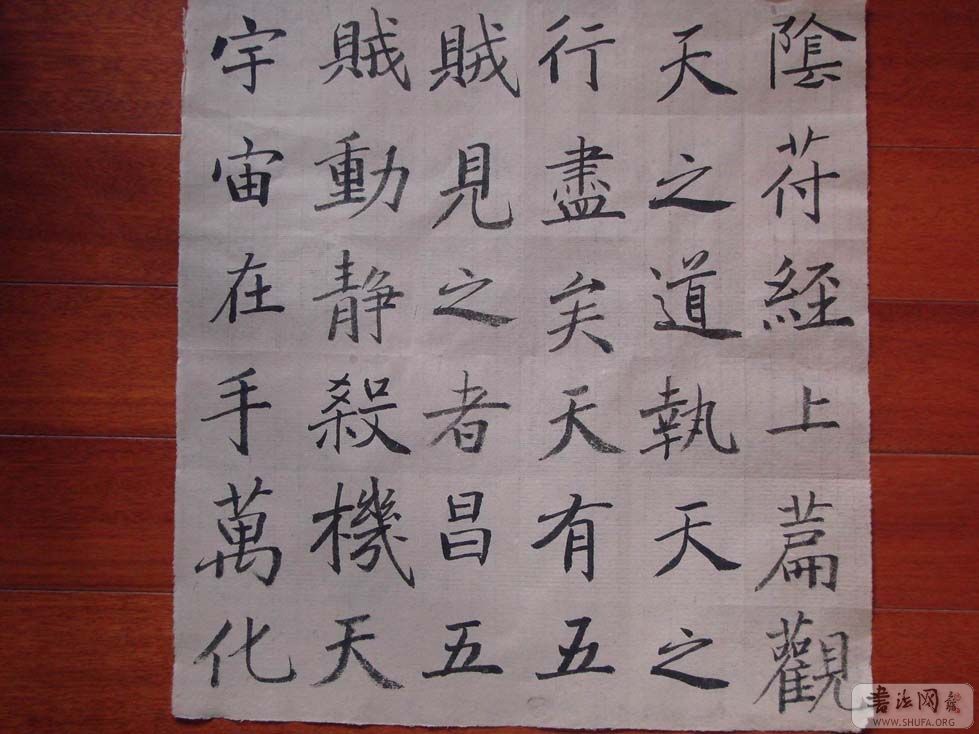 陰苻經上篇觀
天之道執天之
行盡矣天有五
賊見之者昌五
賊動靜殺機天
宇宙在手萬化
書法网
WWW.SHUFA.ORG